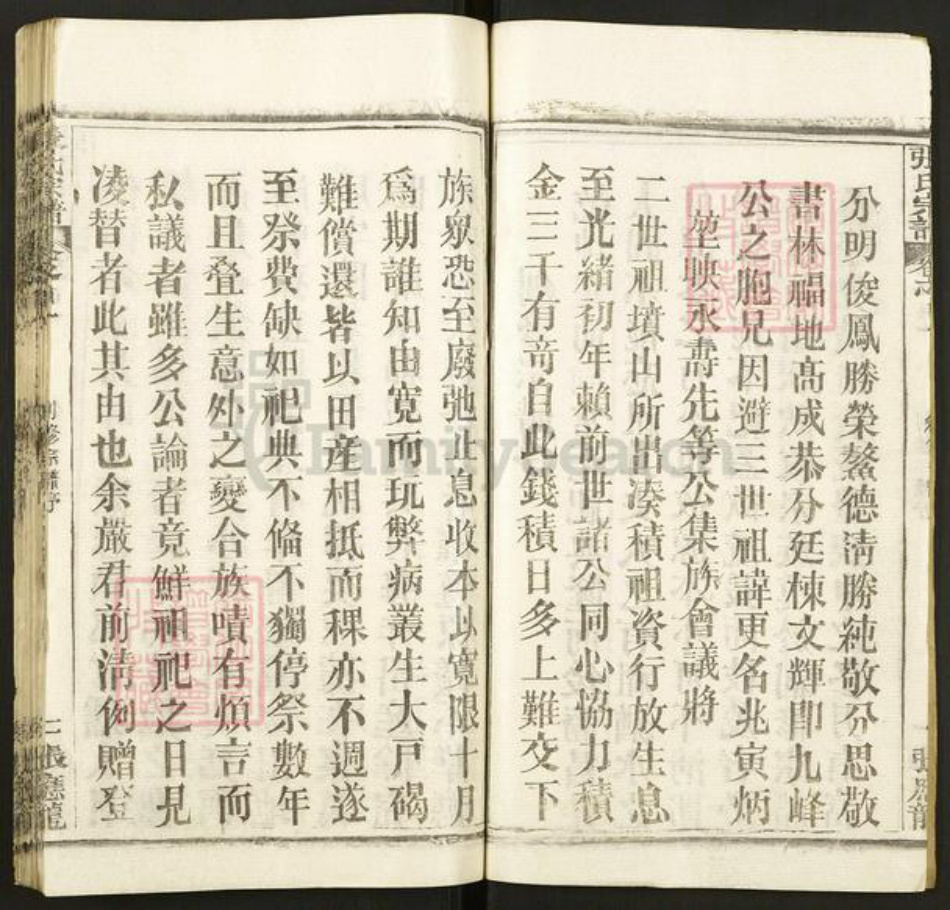 張氏宗譜
分明俊鳳勝榮鰲德淸勝純敬分思敬
書林福地高成恭分廷棟文輝卽九峰
公之胞兄因避三世祖諱更名兆寅炳
堃映永壽先等公集族會議將
二世祖墳山所出湊積祖資行放生息
至光緒初年賴前世諸公同心協力積
金三千有奇自此錢積日多上難交下
族衆恐至廢弛止息收本以寬限十月
爲期誰知由寬而玩弊病叢生大戸碣
難償還皆以田產相抵而稞亦不週遂
至祭費缺如祀典不脩不獨停祭數年
而且叠生意外之變合族嘖有煩言而
私議者雖多公論者竟鮮祖祀之日見
凌替者此其由也余嚴君前淸例贈登
二 張應龍
FamilySearch